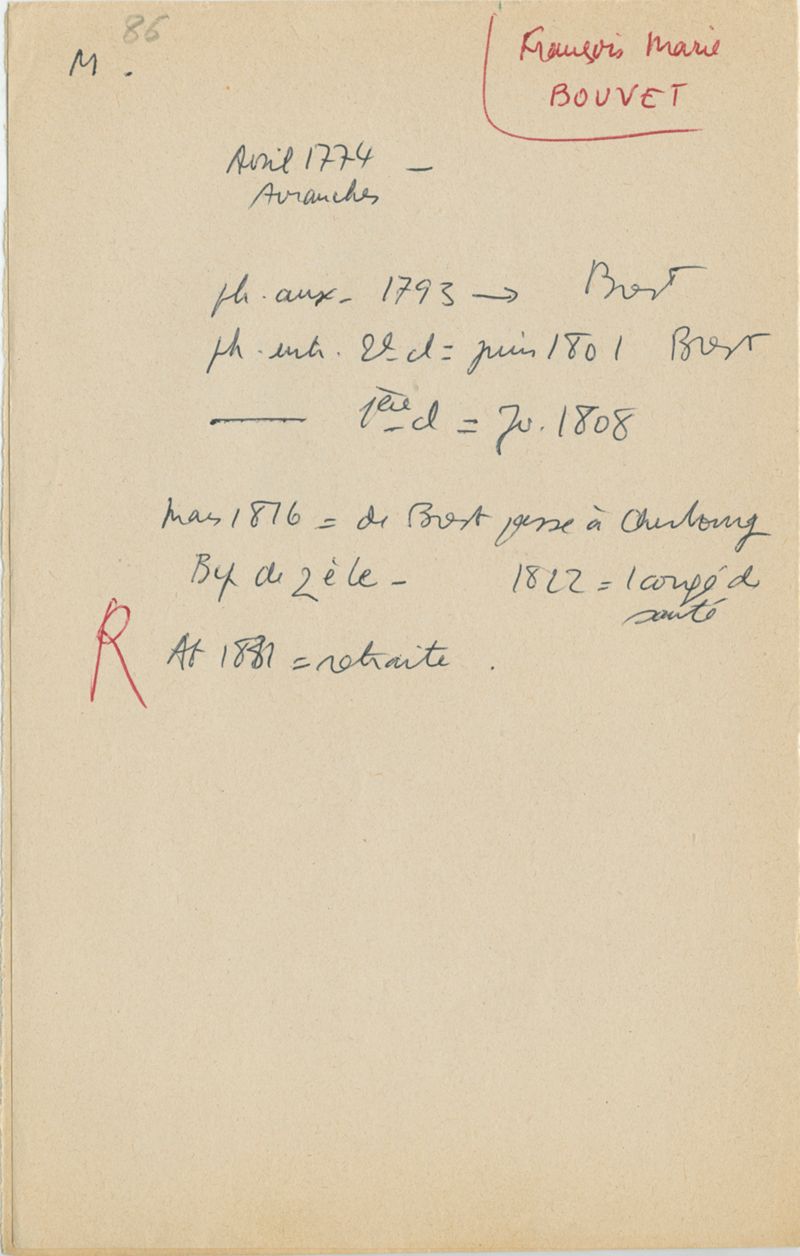 86
M.
François Marie
BOUVET
Avril 1774 —
Avranches
ph. aux - 1793 → Brest
ph. entr. 2e cl = juin 1801 Brest
—— 1ère cl = Jv. 1808
Mars 1816 = de Brest passe à Cherbourg
Bcp de zèle - 1822 = 1 congé de
santé
R At 1831 = retraite .